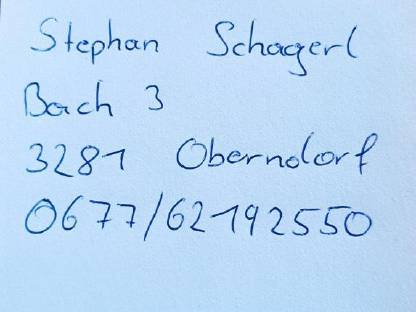 Stephan Schagerl
Bach 3
3281 Oberndorf
0677/62192550